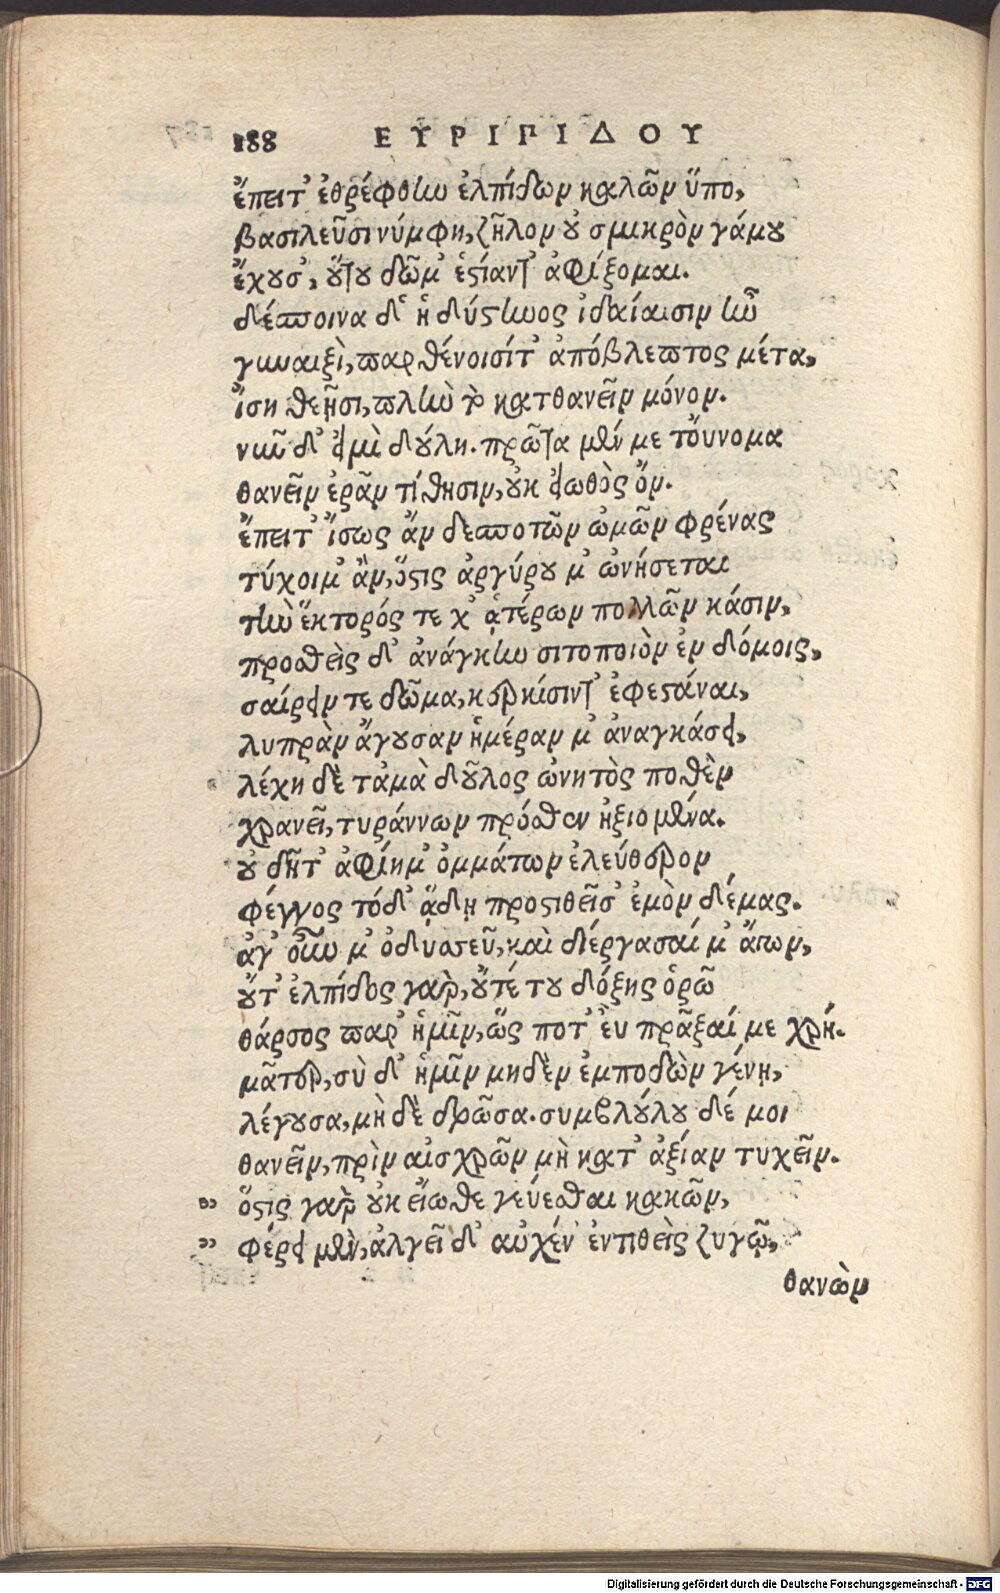 188 ΕΥΡΙΠΙΔΟΥ
ἔπειτ᾽ ἐθρέφθην ἐλπίδων καλῶν ὕπο,
βασιλεῦσι νύμφη, ζῆλον οὐ σμικρὸν γάμου
ἔχουσ᾽, ὅτου δῶμ᾽ ἑστίαντ᾽ ἀφίξομαι.
δέσποινα δ᾽ ἡ δύστηνος ἰδαίαισιν ἦν
γυναιξὶ, παρθένοισίτ᾽ ἀπόβλεπτος μέτα,
ἴση θεῇσι, πλὴν τὸ κατθανεῖν μόνον.
νῦν δ᾽ εἰμὶ δούλη. πρῶτα μέν με τὄυνομα
θανεῖν ἐρᾶν τίθησιν, οὐκ εἰωθὸς ὄν.
ἔπειτ᾽ ἴσως ἂν δεσποτῶν ὠμῶν φρένας
τύχοιμ᾽ ἂν, ὅστις ἀργύρου μ᾽ ὠνήσεται
τὴν ἕκτορός τε χ᾽ ἁτέρων πολλῶν κάσιν,
προσθεὶς δ᾽ ἀνάγκην σιτοποιὸν ἐν δόμοις,
σαίρειν τε δῶμα, κερκίσιντ᾽ ἐφεστάναι,
λυπρὰν ἄγουσαν ἡμέραν μ᾽ ἀναγκάσει,
λέχη δὲ τἀμὰ δοῦλος ὠνητὸς ποθὲν
χρανεῖ, τυράννων πρόσθεν ἠξιωμένα.
οὐ δῆτ᾽ ἀφίημ᾽ ὀμμάτων ἐλεύθερον
φέγγος τόδ᾽ ᾅδῃ προστιθεῖσ᾽ ἐμὸν δέμας.
ἀγ᾽ οὖν μ᾽ ὀδυσσεῦ, καὶ διέργασαί μ᾽ ἄγων,
οὔτ᾽ ἐλπίδος γὰρ, οὔτέ του δόξης ὁρῶ
θάρσος παρ᾽ ἡμῖν, ὥς ποτ᾽ ἐυ πρᾶξαί με χρή.
μᾶτερ, σὺ δ᾽ ἡμῖν μηδὲν ἐμποδὼν γένῃ,
λέγουσα, μὴ δὲ δρῶσα. συμβούλου δέ μοι
θανεῖν, πρὶν αἰσχρῶν μὴ κατ᾽ ἀξίαν τυχεῖν.
„ ὅστις γὰρ οὐκ εἴωθε γεύεσθαι κακῶν,
„ φέρει μὲν, ἀλγεῖ δ᾽ αὐχέν᾽ ἐντιθεὶς ζυγῷ,
θανὼν
Digitalisierung gefördert durch die Deutsche Forschungsgemeinschaft - DFG